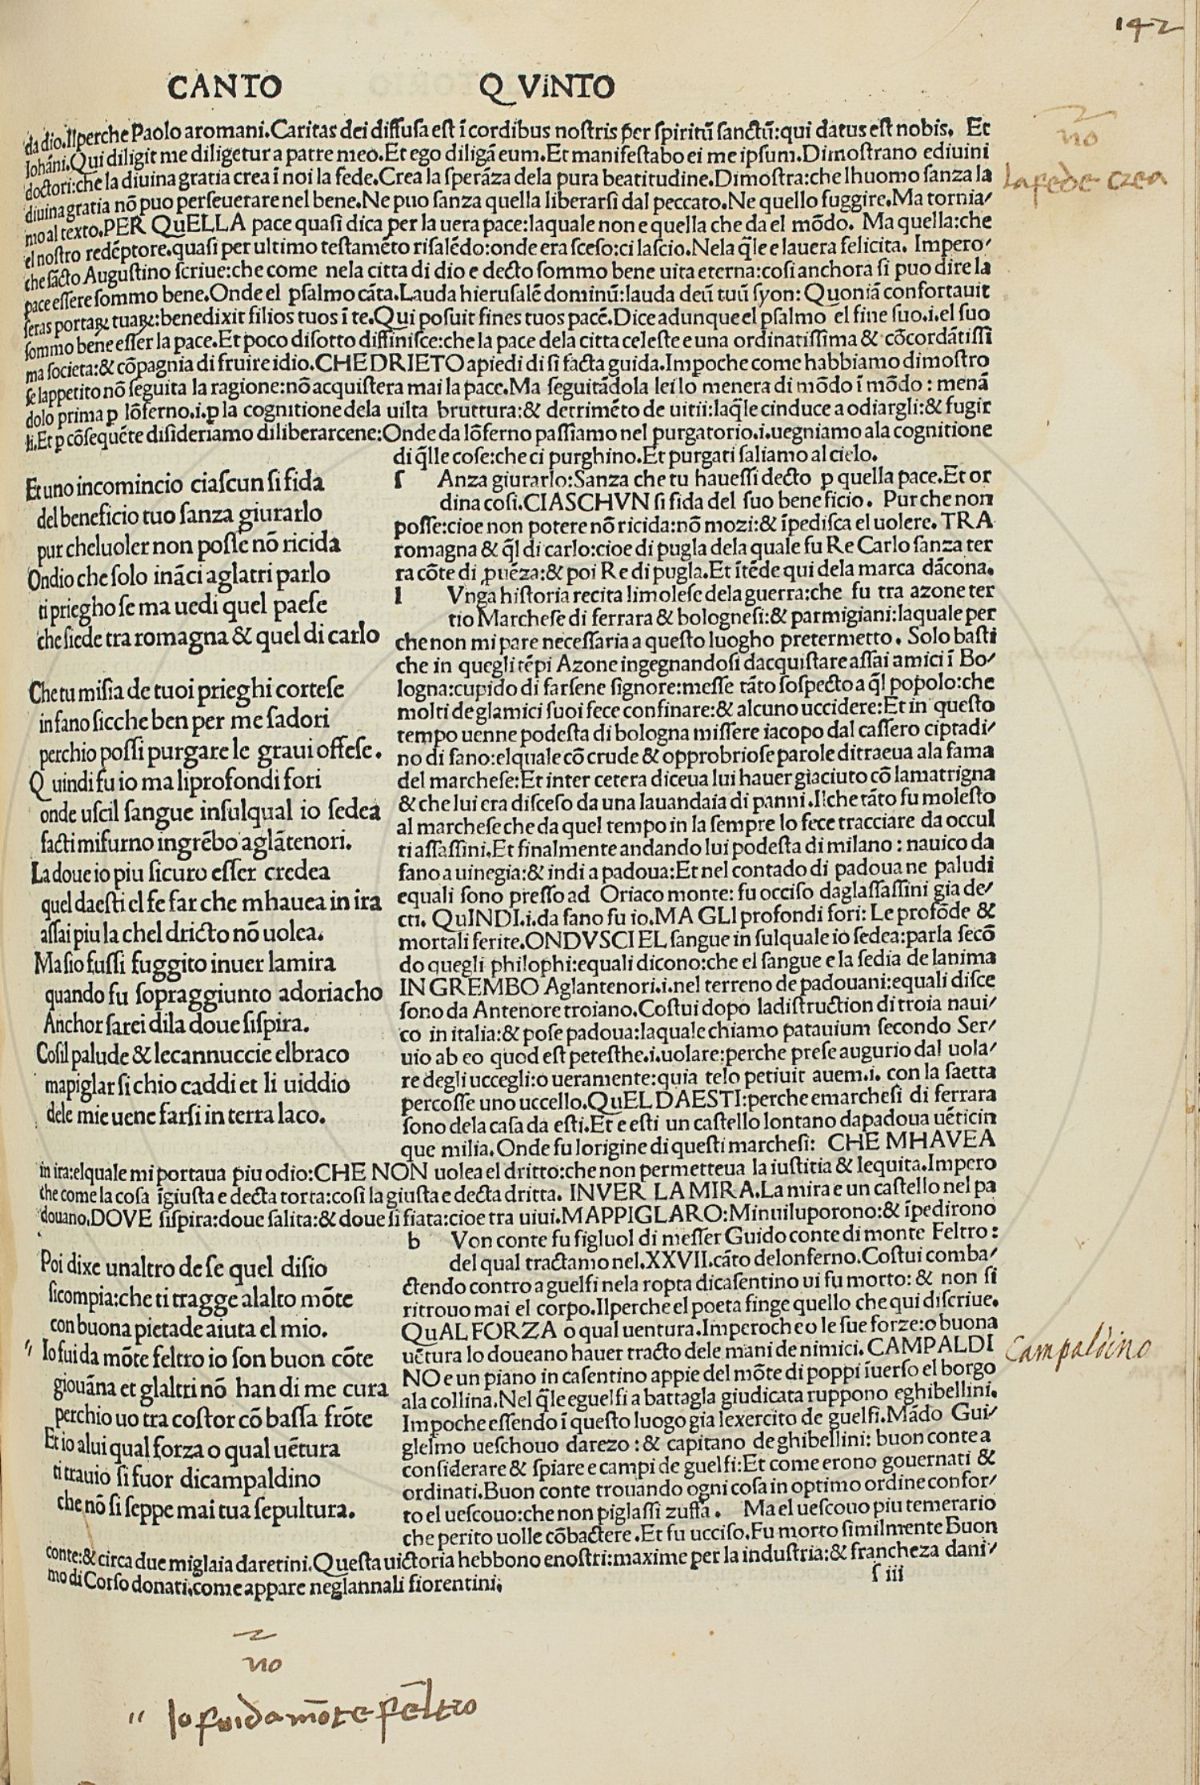 142
CANTO QVINTO
da dio.Ilperche Paolo aromani.Caritas dei diffusa est ĩ cordibus nostris per spiritũ sanctũ:qui datus est nobis. Et
Iohãni.Qui diligit me diligetur a patre meo.Et ego diligã eum.Et manifestabo ei me ipsum.Dimostrano ediuini
doctori:che la diuina gratia crea ĩ noi la fede.Crea la sperãza dela pura beatitudine.Dimostra:che lhuomo sanza la
diuina gratia nõ puo perseuerare nel bene.Ne puo sanza quella liberarsi dal peccato.Ne quello fuggire.Ma tornia/
mo al texto.PER QuELLA pace quasi dica per la uera pace:laquale non e quella che da el mõdo. Ma quella:che
el nostro redẽptore.quasi per ultimo testamẽto risalẽdo:onde era sceso:ci lascio.Nela q̃le e lauera felicita. Impero/
che sãcto Augustino scriue:che come nela citta di dio e decto sommo bene uita eterna:cosi anchora si puo dire la
pace essere sommo bene.Onde el psalmo cãta.Lauda hierusalẽ dominũ:lauda deũ tuũ syon:Quoniã confortauit
seras portaꝝ tuaꝝ:benedixit filios tuos ĩ te.Qui posuit fines tuos pacẽ.Dice adunque el psalmo el fine suo.i.el suo
sommo bene esser la pace.Et poco disotto diffinisce:che la pace dela citta celeste e una ordinatissima & cõcordãtissi
ma societa:& cõpagnia di fruire idio.CHEDRIETO apiedi di si facta guida.Impoche come habbiamo dimostro
se lappetito nõ seguita la ragione:nõ acquistera mai la pace.Ma seguitãdola lei lo menera di mõdo ĩ mõdo:menã
dolo prima p lõferno.i.p la cognitione dela uilta bruttura:& detrimẽto de uitii:laq̃le cinduce a odiargli:& fugir
li.Et p cõsequẽte disideriamo diliberarcene:Onde da lõferno passiamo nel purgatorio.i.uegniamo ala cognitione
di q̃lle cose:che ci purghino.Et purgati saliamo al cielo.
Et uno incomincio ciascun si fida
del beneficio tuo sanza giurarlo
pur cheluoler non posse nõ ricida
Ondio che solo inãci aglatri parlo
ti priegho se ma uedi quel paese
che siede tra romagna & quel di carlo
Che tu misia de tuoi prieghi cortese
in fano sicche ben per me sadori
perchio possi purgare le graui offese.
Quindi fu io ma liprofondi fori
onde uscil sangue insulqual io sedea
facti mifurno ingrẽbo aglãtenori.
La doue io piu sicuro esser credea
quel daesti el fe far che mhauea in ira
assai piu la chel dricto nõ uolea.
Ma sio fussi fuggito inuer lamira
quando fu sopraggiunto adoriacho
Anchor sarei dila doue sispira.
Cosil palude & lecannuccie elbraco
mapiglar si chio caddi et li uiddio
dele mie uene farsi in terra laco.
s Anza giurarlo:Sanza che tu hauessi decto p quella pace.Et or
dina cosi.CIASCHVN si fida del suo beneficio. Pur che non
posse:cioe non potere nõ ricida:nõ mozi:& ĩpedisca el uolere.TRA
romagna & q̃l di carlo:cioe di pugla dela quale fu Re Carlo sanza ter
ra cõte di puẽza:& poi Re di pugla.Et ĩtẽde qui dela marca dãcona.
l Vnga historia recita limolese dela guerra:che fu tra azone ter
tio Marchese di ferrara & bolognesi:& parmigiani:laquale per
che non mi pare necessaria a questo luogho pretermetto. Solo basti
che in quegli tẽpi Azone ingegnandosi dacquistare assai amici ĩ Bo/
logna:cupido di farsene signore:messe tãto sospecto a q̃l popolo:che
molti de glamici suoi fece confinare:& alcuno uccidere:Et in questo
tempo uenne podesta di bologna missere iacopo dal cassero ciptadi/
no di fano:elquale cõ crude & opprobriose parole ditraeua ala fama
del marchese:Et inter cetera diceua lui hauer giaciuto cõ lamatrigna
& che lui era disceso da una lauandaia di panni.Ilche tãto fu molesto
al marchese che da quel tempo in la sempre lo fece tracciare da occul
ti assassini.Et finalmente andando lui podesta di milano:nauico da
fano a uinegia:& indi a padoua:Et nel contado di padoua ne paludi
equali sono presso ad Oriaco monte:fu occiso daglassassini gia de/
cti. QuINDI.i.da fano fu io.MA GLI profondi fori:Le profõde &
mortali ferite.ONDVSCI EL sangue in sulquale io sedea:parla secõ
do quegli philophi:equali dicono:che el sangue e la sedia de lanima
IN GREMBO Aglantenori.i.nel terreno de padouani:equali disce
sono da Antenore troiano.Costui dopo ladistruction di troia naui/
co in italia:& pose padoua:laquale chiamo patauium secondo Ser/
uio ab eo quod est petesthe.i.uolare:perche prese augurio dal uola/
re degli uccegli:o ueramente:quia telo petiuit auem.i. con la saetta
percosse uno uccello.QuEL DAESTI:perche emarchesi di ferrara
sono dela casa da esti.Et e esti un castello lontano dapadoua uẽticin
que milia.Onde fu lorigine di questi marchesi: CHE MHAVEA
in ira:elquale mi portaua piu odio:CHE NON uolea el dritto:che non permetteua la iustitia & lequita.Impero
che come la cosa ĩgiusta e decta torta:cosi la giusta e decta dritta. INVER LAMIRA.La mira e un castello nel pa
douano.DOVE sispira:doue salita:& doue si fiata:cioe tra uiui.MAPPIGLARO:Minuiluporono:& ĩpedirono
Poi dixe unaltro de se quel disio
sicompia:che ti tragge alalto mõte
con buona pietade aiuta el mio.
" Io fui da mõte feltro io son buon cõte
giouãna et glaltri nõ han di me cura
perchio uo tra costor cõ bassa frõte
Et io alui qual forza o qual uẽtura
ti trauio si fuor dicampaldino
che nõ si seppe mai tua sepultura.
b Von conte fu figluol di messer Guido conte di monte Feltro:
del qual tractamo nel.XXVII.cãto delonferno.Costui comba/
ctendo contro a guelfi nela ropta dicasentino ui fu morto:& non si
ritrouo mai el corpo.Ilperche el poeta finge quello che qui discriue.
QuAL FORZA o qual uentura.Imperoche o le sue forze:o buona
uẽtura lo doueano hauer tracto dele mani de nimici. CAMPALDI
NO e un piano in casentino appie del mõte di poppi ĩuerso el borgo
ala collina.Nel q̃le eguelfi a battagla giudicata ruppono eghibellini.
Impoche essendo ĩ questo luogo gia lexercito de guelfi.Mãdo Gui/
glelmo ueschouo darezo:& capitano de ghibellini:buon conte a
considerare & spiare e campi de guelfi:Et come erono gouernati &
ordinati.Buon conte trouando ogni cosa in optimo ordine confor/
to el uescouo:che non piglassi zuffa. Ma el uescouo piu temerario
che perito uolle cõbactere.Et fu ucciso.Fu morto similmente Buon
conte:& circa due miglaia daretini.Questa uictoria hebbono enostri:maxime per la industria:& francheza dani/
mo di Corso donati.come appare neglannali fiorentini.
s iii
no
la fede crea
Campaldino
no
" Io fui da mõte feltro